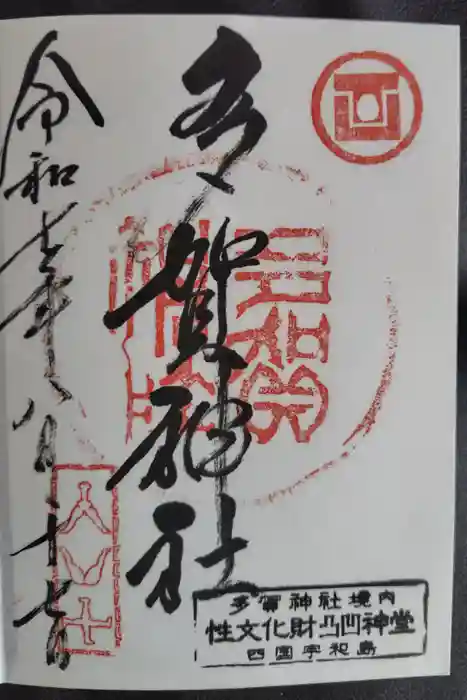 多賀神社
令和七年八月十七日
多賀神社境内
性文化財凸凹神堂
四国宇和島